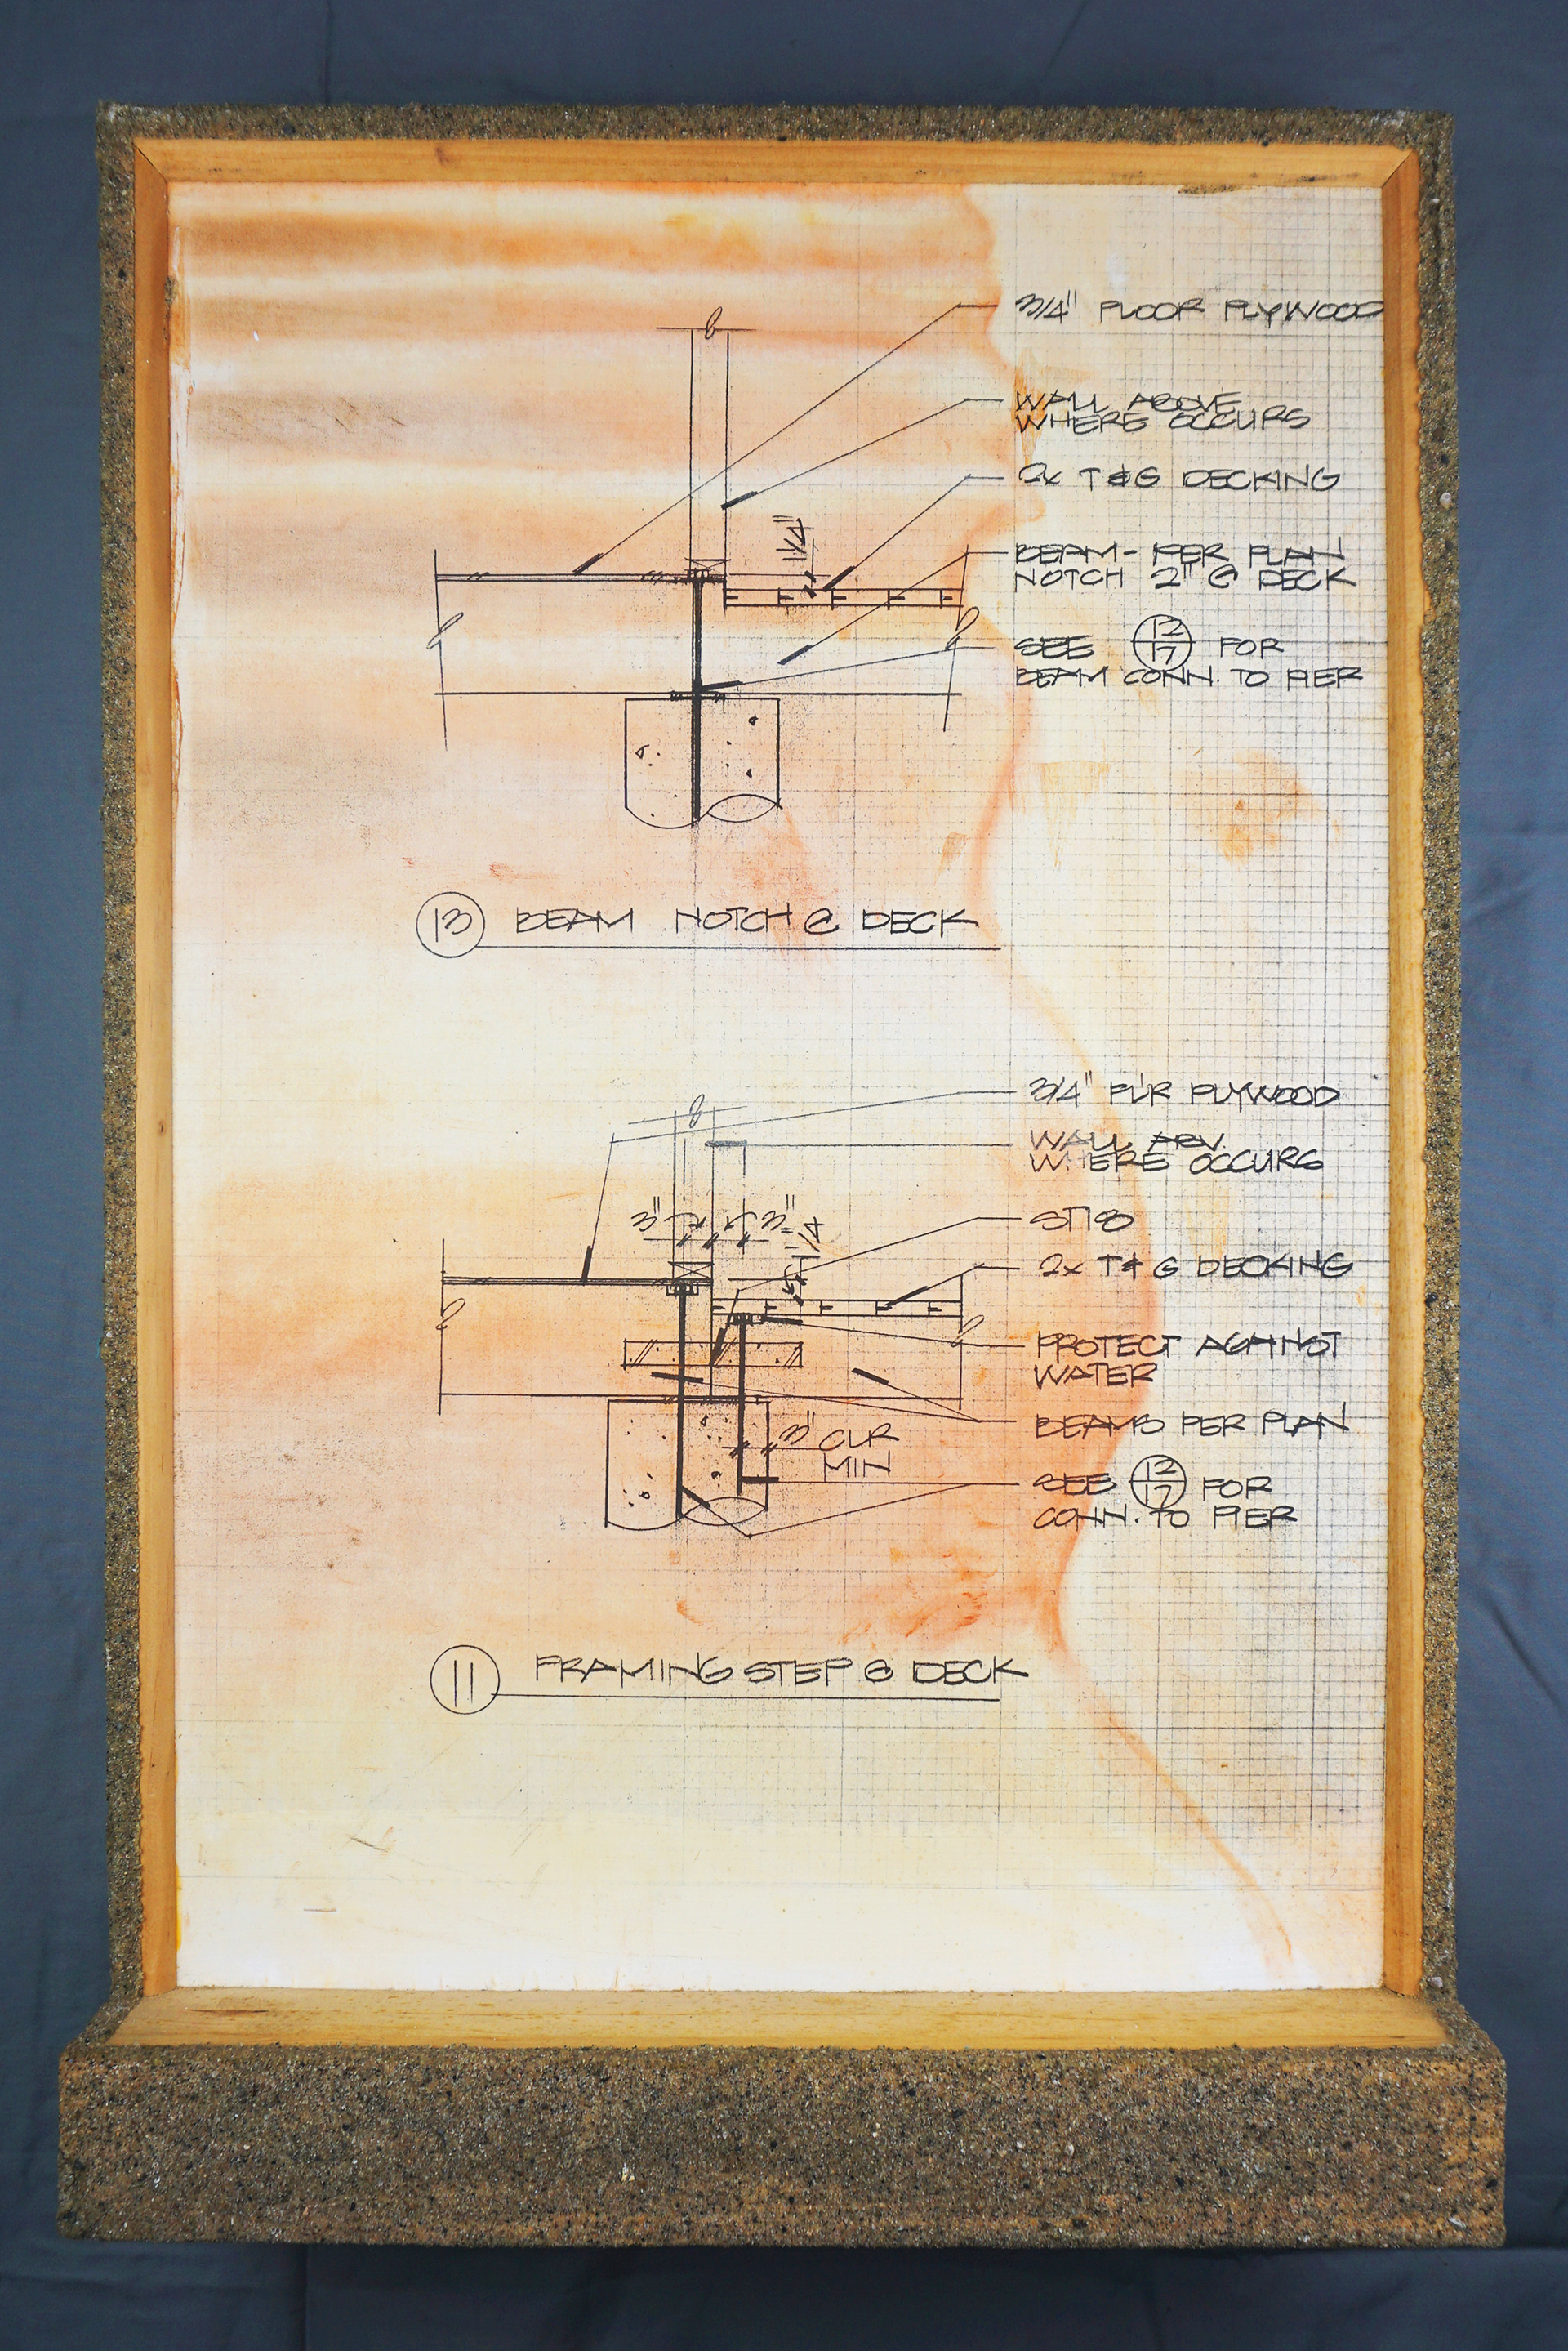 3/4" FLOOR PLYWOOD
WALL ABOVE
WHERE OCCURS
2x T&G DECKING
1/4"
BEAM - PER PLAN
NOTCH 2" @ DECK
SEE 12/17 FOR
BEAM CONN. TO PIER
13 BEAM NOTCH @ DECK
3/4" FL'R PLYWOOD
WALL ABV.
WHERE OCCURS
3" 3" 1/4"
ST18
2x T&G DECKING
PROTECT AGAINST
WATER
BEAMS PER PLAN
3" CLR
MIN
SEE 12/17 FOR
CONN. TO PIER
11 FRAMING STEP @ DECK